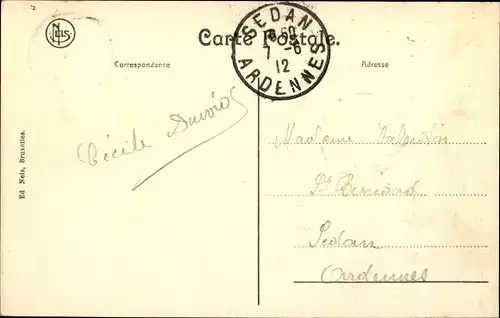 NELS
Carte Postale.
SEDAN
7 -6
12
ARDENNES
Correspondance
Adresse
Ed. Nels, Bruxelles.
Cécile
Madame Valentin
Sedan
Ardennes